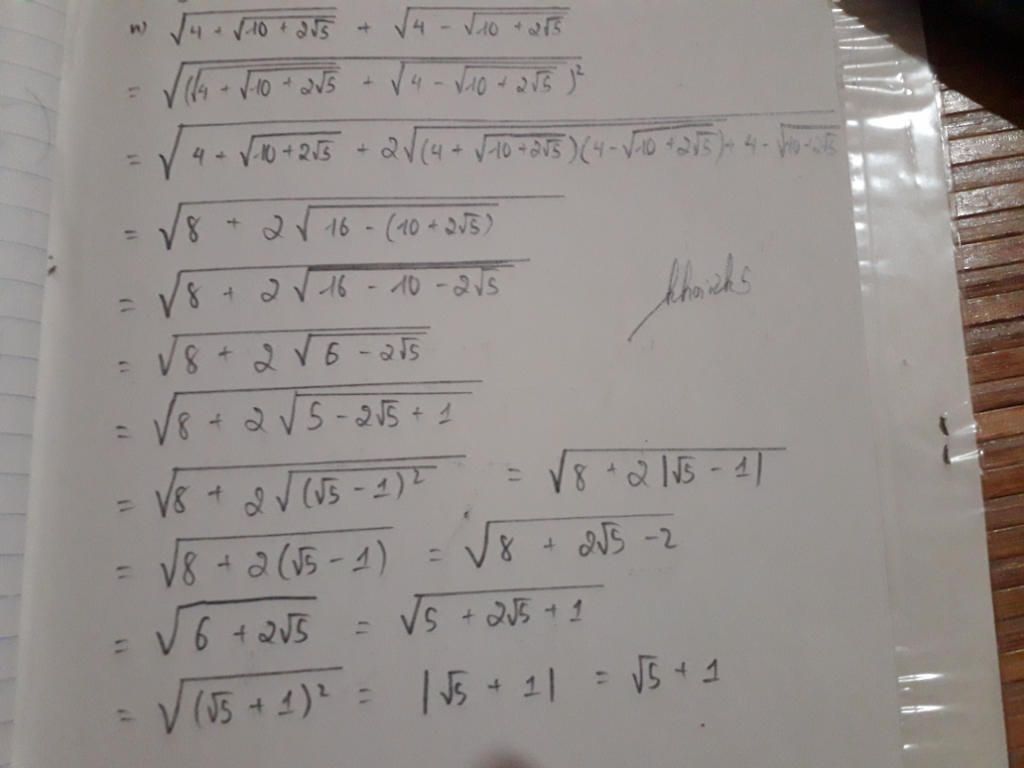 n) √(4 + √(10 + 2√5)) + √(4 - √(10 + 2√5))
= √((√(4 + √(10 + 2√5)) + √(4 - √(10 + 2√5)))²)
= √(4 + √(10 + 2√5) + 2√((4 + √(10 + 2√5))(4 - √(10 + 2√5))) + 4 - √(10 + 2√5))
= √(8 + 2√(16 - (10 + 2√5)))
= √(8 + 2√(16 - 10 - 2√5))
= √(8 + 2√(6 - 2√5))
= √(8 + 2√(5 - 2√5 + 1))
= √(8 + 2√((√5 - 1)²)) = √(8 + 2|√5 - 1|)
= √(8 + 2(√5 - 1)) = √(8 + 2√5 - 2)
= √(6 + 2√5) = √(5 + 2√5 + 1)
= √((√5 + 1)²) = |√5 + 1| = √5 + 1